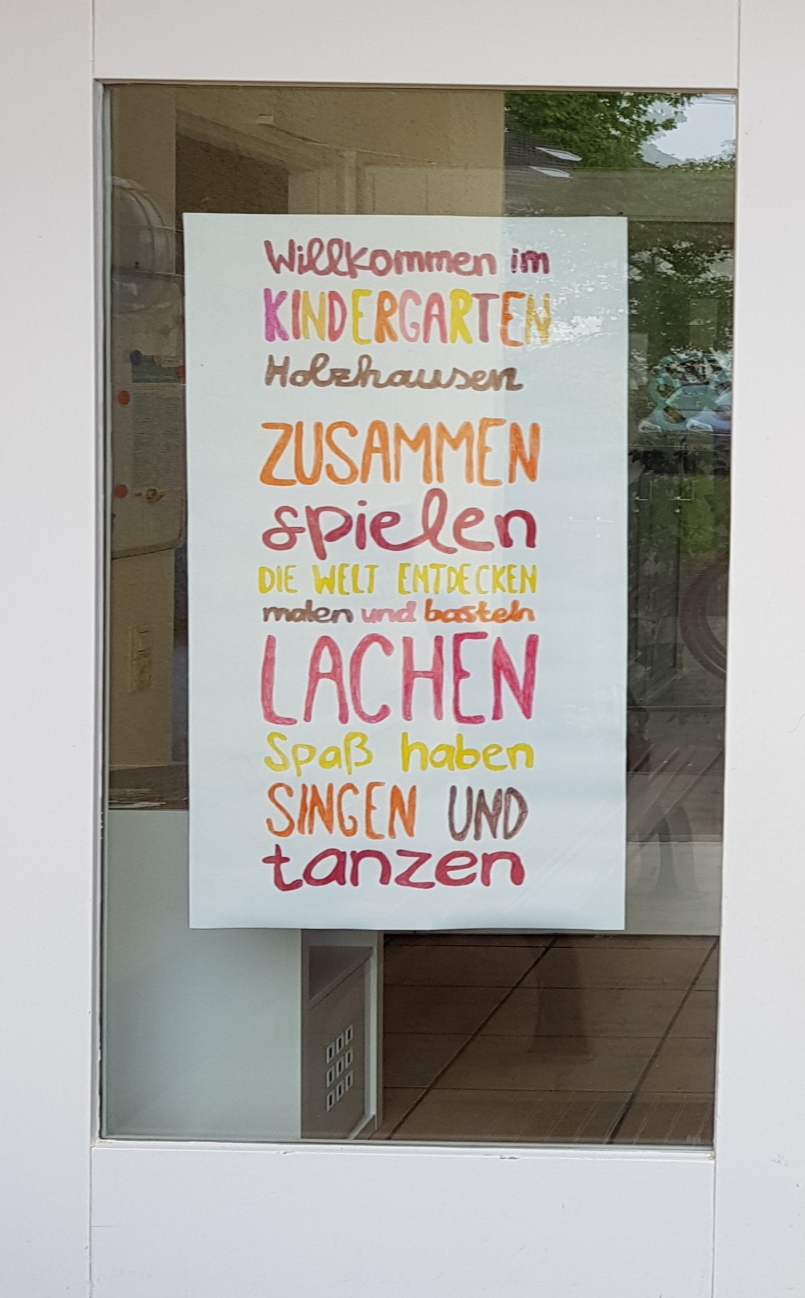 Willkommen im
KINDERGARTEN
Holzhausen
ZUSAMMEN
spielen
DIE WELT ENTDECKEN
malen und basteln
LACHEN
Spaß haben
SINGEN UND
tanzen